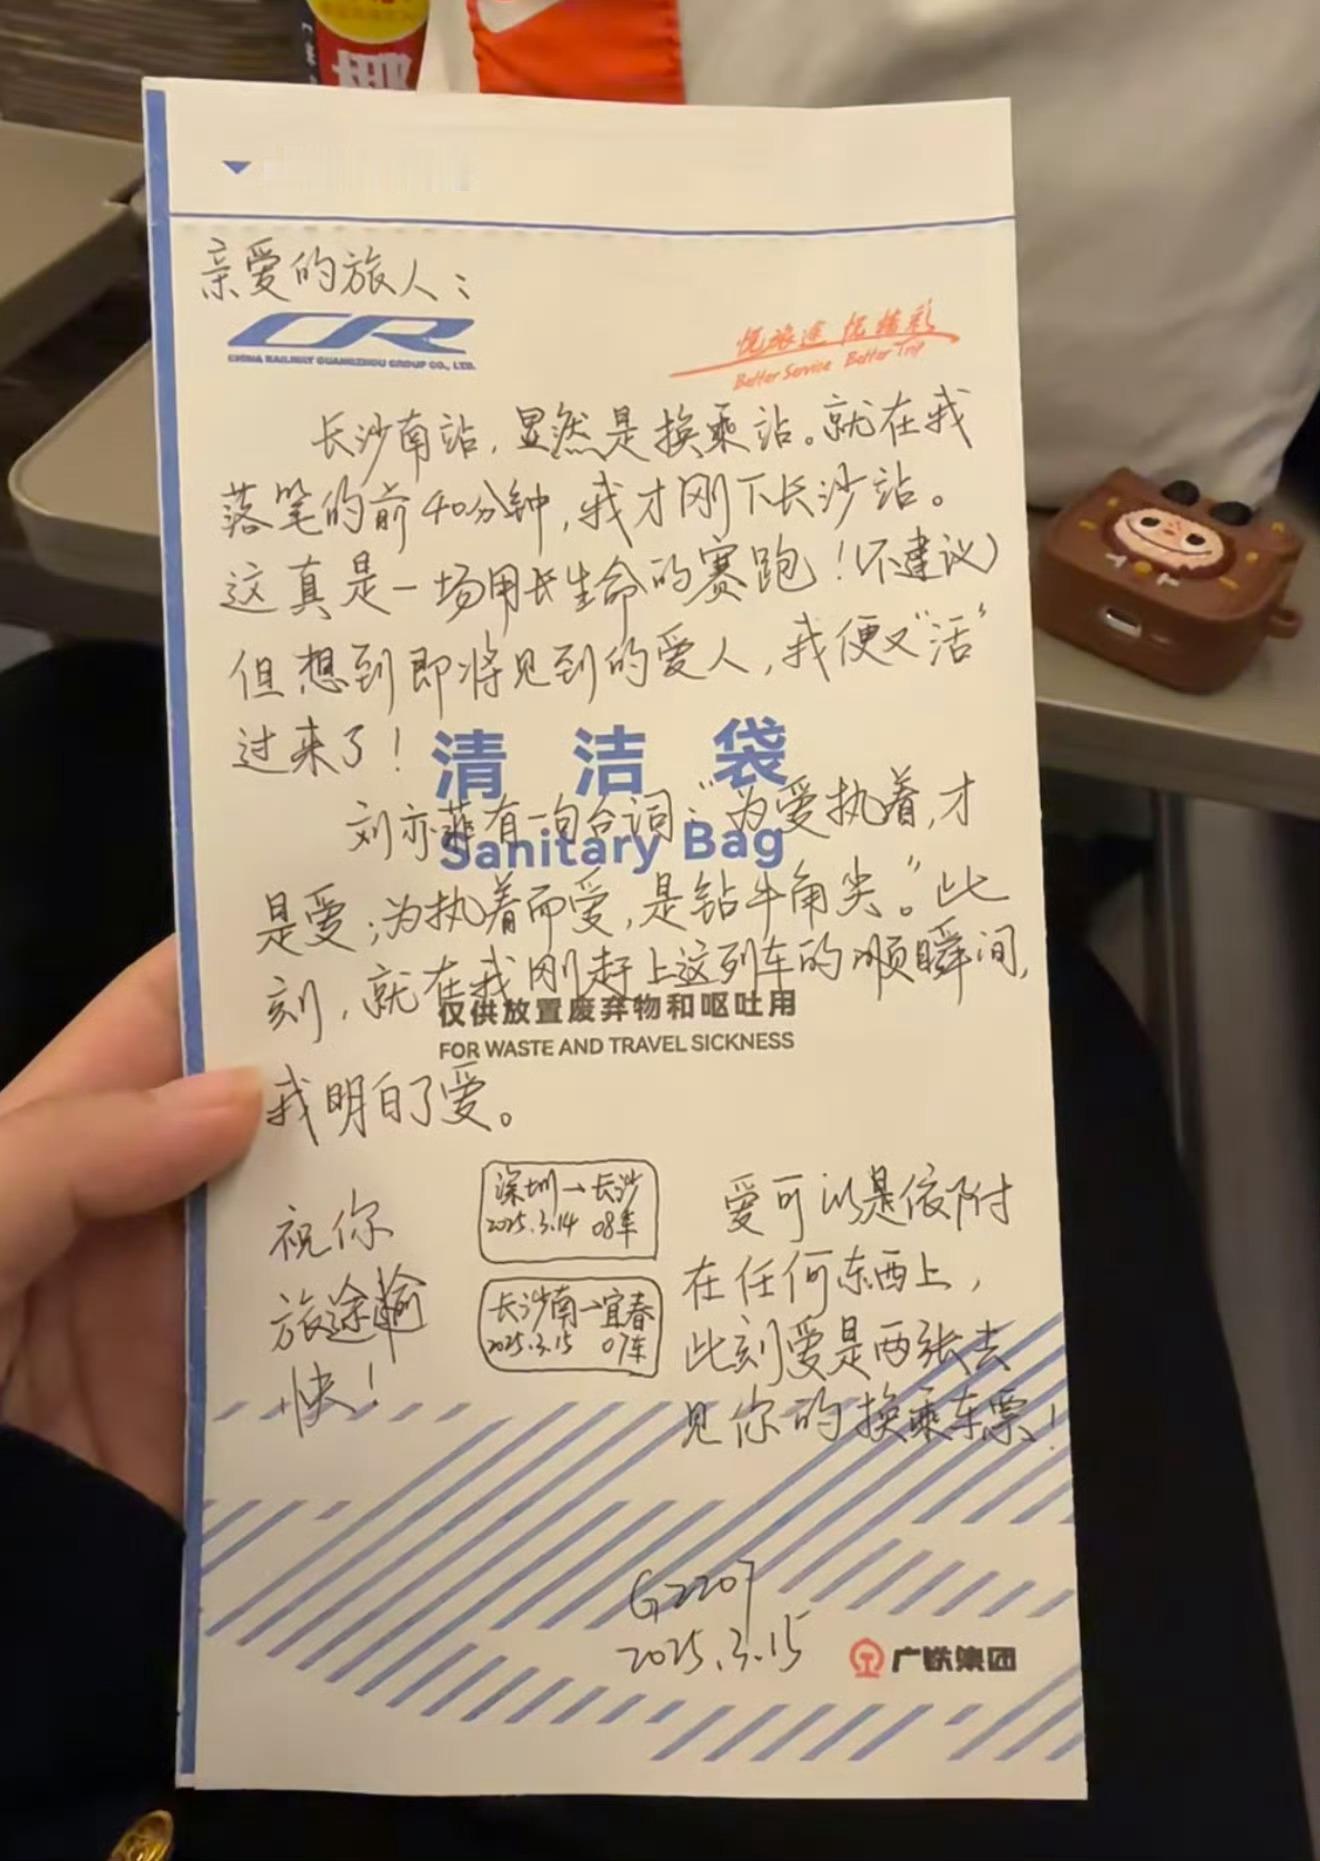 椰
亲爱的旅人：
CR
CHINA RAILWAY GUANGZHOU GROUP CO., LTD.
悦旅途 悦精彩
Better Service Better Trip
长沙南站，显然是换乘站。就在我
落笔的前40分钟，我才刚下长沙站。
这真是一场用长生命的赛跑！（不建议）
但想到即将见到的爱人，我便又“活”
过来了！
清洁袋
刘亦菲有一句台词：“为爱执着，才
Sanitary Bag
是爱；为执着而爱，是钻牛角尖。”此
刻，就在我刚赶上这列车的顺瞬间，
仅供放置废弃物和呕吐用
FOR WASTE AND TRAVEL SICKNESS
我明白了爱。
祝你
旅途愉
快！
深圳→长沙
2025.3.14 08车
长沙南→宜春
2025.3.15 07车
爱可以是依附
在任何东西上，
此刻爱是两张去
见你的换乘车票！
G2207
2025.3.15
广铁集团